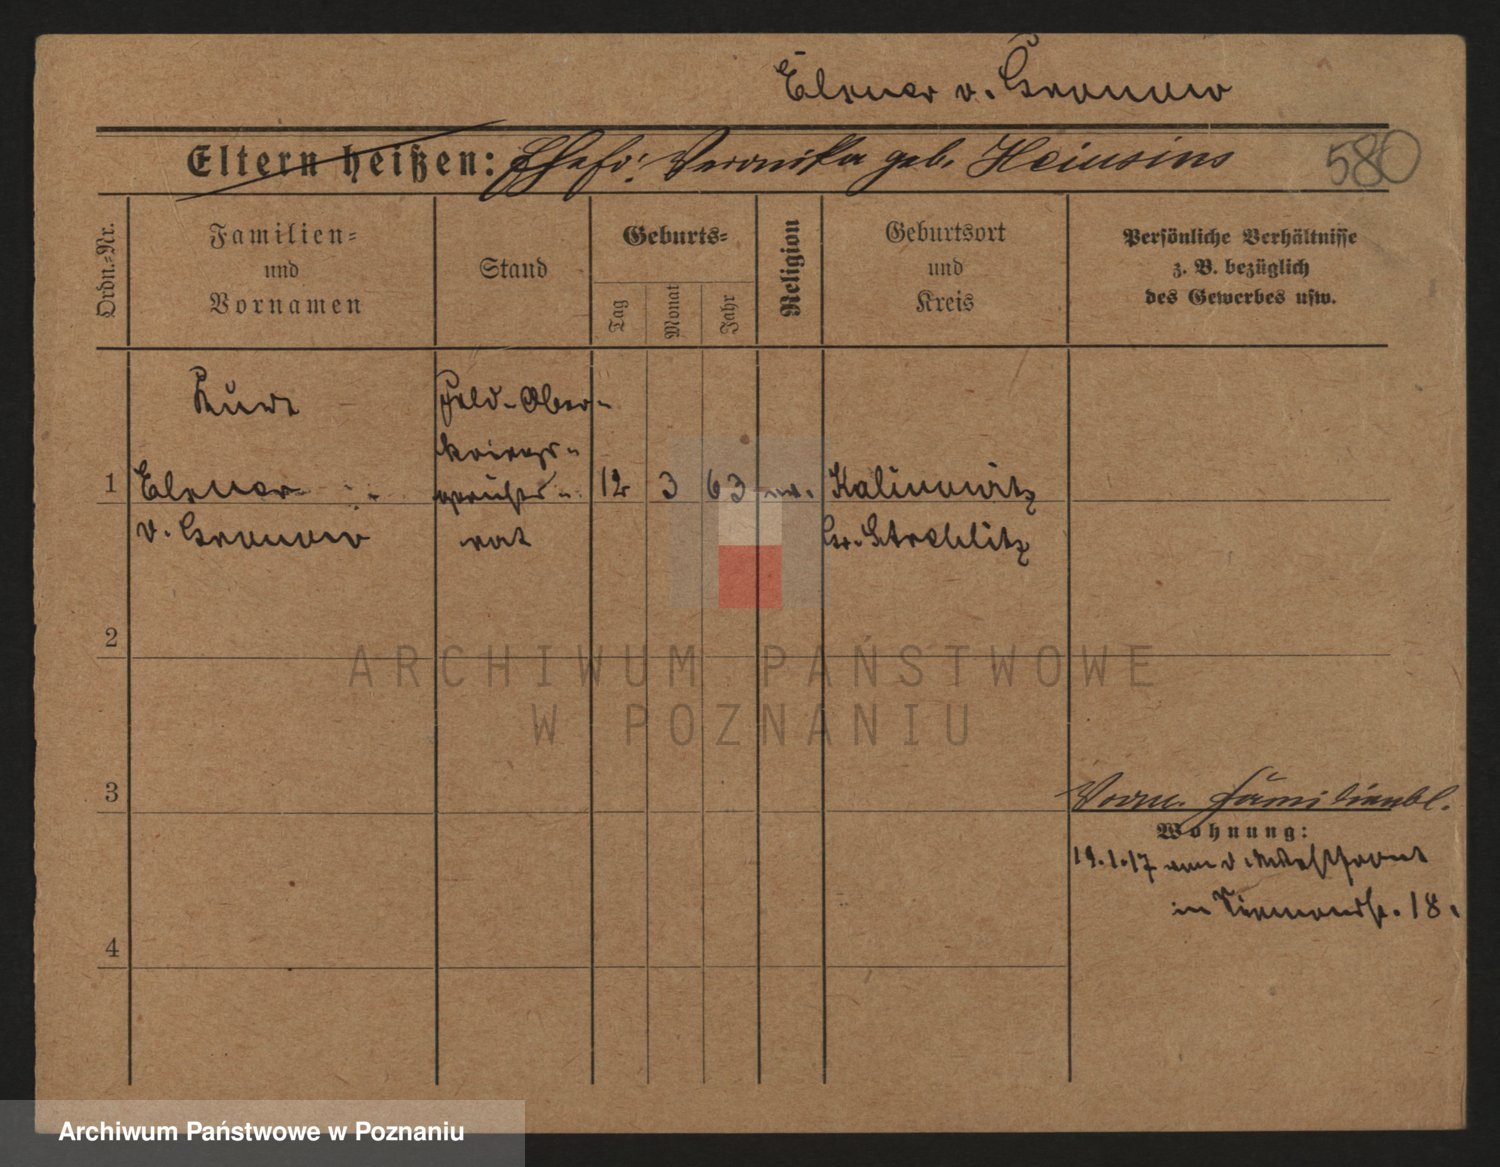 Elsner v. Gronow
Eltern heißen: Ehefr: Veronika geb. Heinsius
580
Ordn.-Nr.
Familien-
und
Vornamen
Stand
Geburts-
Tag
Monat
Jahr
Religion
Geburtsort
und
Kreis
Persönliche Verhältnisse
z. B. bezüglich
des Gewerbes usw.
Kurt
Feld-Ober-
kriegs-
1 Elsner gerichts- 12 3 63 ev. Kalinowitz
v. Gronow rat Gr. Strehlitz
2
3
Familienbl.
Wohnung:
19.1.17 von d. Westfront
in 18.
4
ARCHIWUM PAŃSTWOWE
W POZNANIU
Archiwum Państwowe w Poznaniu